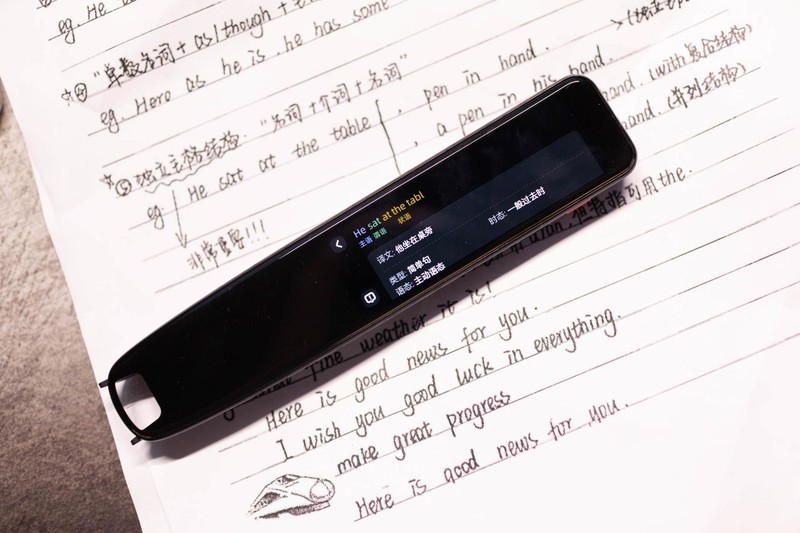 eg. He
"单数名词 + as/though + 主
eg. Hero as he is, he has some
⑤独立主格结构. "名词 + 介词 + 名词"
eg He sat at the table , pen in hand.
, a pen in his hand.
hand. (with复合结构)
hand. (并列结构)
非常重要!!!
He sat at the tabl
主语 谓语 状语
译文: 他坐在桌旁
时态: 一般过去时
类型: 简单句
语态: 主动语态
特指可用the.
fine weather it is!
Here is good news for you.
I wish you good luck in everything.
make great progress
Here is good news for you.